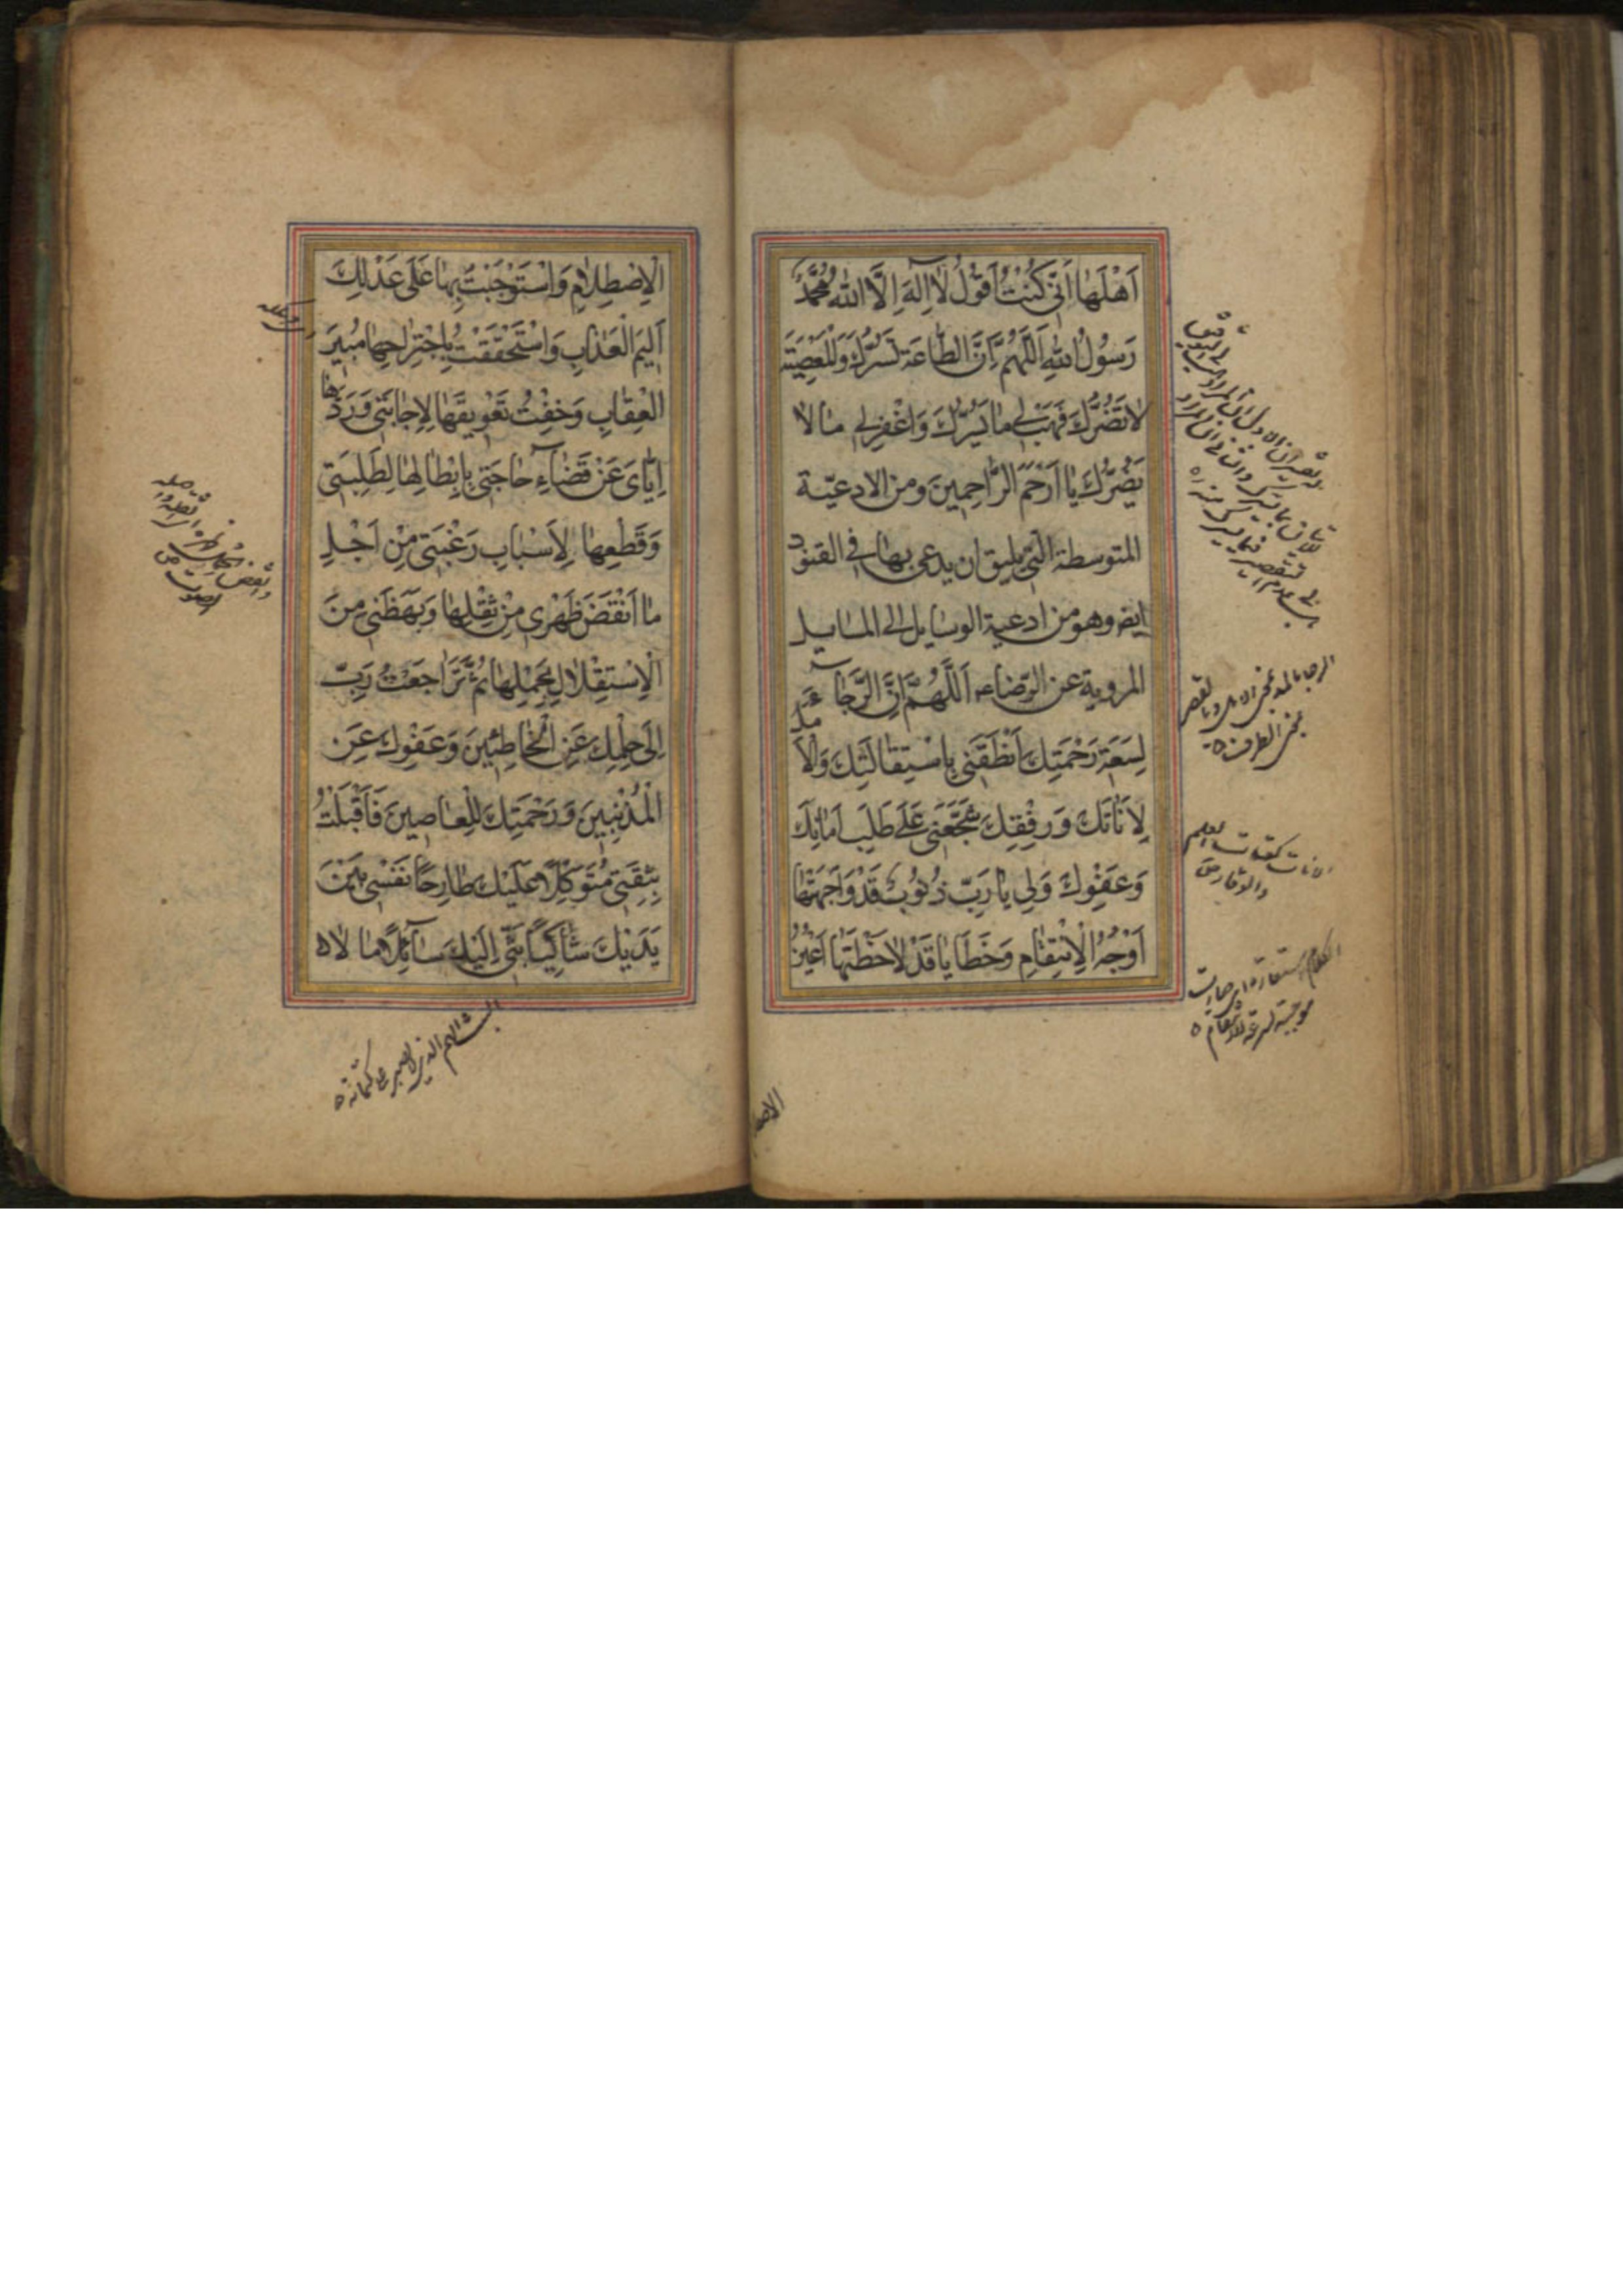 اَهْلَهٰا اَنّى كُنْتُ اَقُولُ لٰا اِلٰهَ اِلَّا اللّٰهُ مُحَمَّدٌ
رَسُولُ اللّٰهِ اَللّٰهُمَّ اِنَّ الطّٰاعَةَ تَسُرُّكَ وَالْمَعْصِيَةَ
لٰا تَضُرُّكَ فَهَبْ لى مٰا يَسُرُّكَ وَاغْفِرْ لى مٰا لٰا
يَضُرُّكَ يٰا اَرْحَمَ الرّٰاحِمينَ ومن الادعيّة
المتوسطة الّتى يليق ان يدعى بها فى القنوت
ايضا وهو من ادعية الوسايل الى المسايل
المروية عن الرّضاء اَللّٰهُمَّ اِنَّ الرَّجٰاءَ
لِسَعَةِ رَحْمَتِكَ اَنْطَقَنى بِاسْتِقٰالَتِكَ وَالْاَمَلَ
لِاَنٰاتِكَ وَرِفْقِكَ شَجَّعَنى عَلٰى طَلَبِ اَمٰانِكَ
وَعَفْوِكَ وَلى يٰا رَبِّ ذُنُوبٌ قَدْ وٰاجَهَتْهٰا
اَوْجُهُ الْاِنْتِقٰامِ وَخَطٰايٰا قَدْ لٰاحَظَتْهٰا اَعْيُنُ
الرجا بالمد بمعنى الامل وبالقصر
بمعنى الطرف
الكلام استعارة اى صارت
موجبة لسرعة الانتقام
الاصط
الْاِصْطِلٰامِ وَاسْتَوْجَبْتُ بِهٰا عَلٰى عَدْلِكَ
اَليمَ الْعَذٰابِ وَاسْتَحْقَقْتُ بِاجْتِرٰاحِهٰا مُبيرَ
الْعِقٰابِ وَخِفْتُ تَعْويقَهٰا لِاِجٰابَتى وَرَدَّهٰا
اِيّٰاىَ عَنْ قَضٰاءِ حٰاجَتى بِاِبْطٰالِهٰا لِطَلِبَتى
وَقَطْعِهٰا لِاَسْبٰابِ رَغْبَتى مِنْ اَجْلِ
مٰا اَنْقَضَ ظَهْرى مِنْ ثِقْلِهٰا وَبَهَظَنى مِنَ
الْاِسْتِقْلٰالِ بِحَمْلِهٰا ثُمَّ تَرٰاجَعْتُ رَبِّ
اِلٰى حِلْمِكَ عَنِ الْخٰاطِئينَ وَعَفْوِكَ عَنِ
الْمُذْنِبينَ وَرَحْمَتِكَ لِلْعٰاصينَ فَاَقْبَلْتُ
بِثِقَتى مُتَوَكِّلًا عَلَيْكَ طٰارِحًا نَفْسى بَيْنَ
يَدَيْكَ شٰاكِيًا بَثّى اِلَيْكَ سٰائِلًا مٰا لٰا
البث الهم الذى لا يصبر على كتمانه